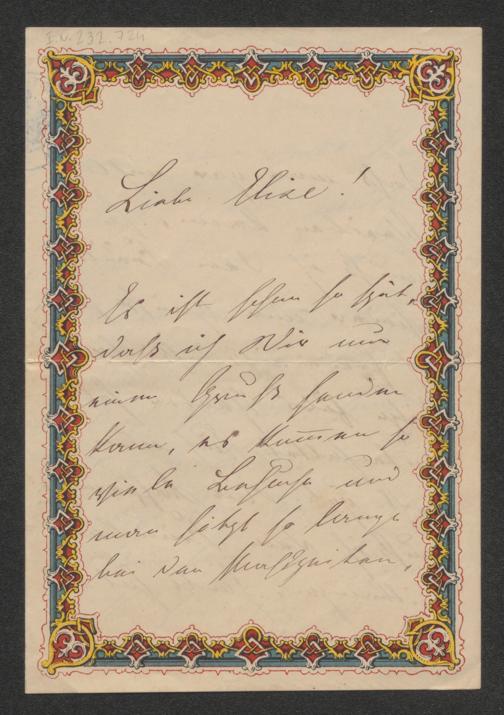 I.N. 232.724
Liebe Elise!
Es ist schon so spät,
daß ich Dir nur
einen Gruß senden
kann, es kommen so
viele Besuche und
man sitzt so lange
bei den Mahlzeiten,